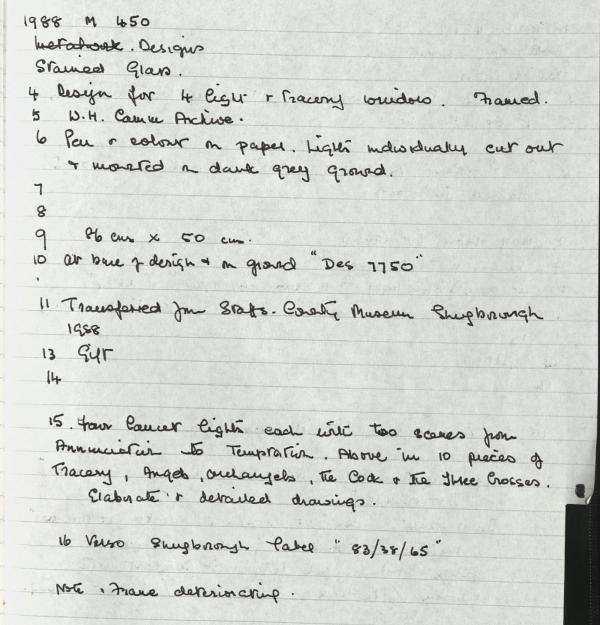 1988 M 450
Metalwork. Designs
Stained Glass.
4 Design for 4 light + Tracery window. Framed.
5 W.H. Camm Archive.
6 Pen & colour on paper. Lights individually cut out
& mounted on dark grey ground.
7
8
9 86 cms x 50 cm.
10 at base of design & on ground "Des 7750"
11 Transferred from Staffs. County Museum Shugborough
1988
13 Gift
14
15. Four lancet lights each with two scenes from
Annunciation to Temptation. Above in 10 pieces of
Tracery, Angels, archangels, the Cock & the Three Crosses.
Elaborate & detailed drawings.
16 Verso Shugborough label "83/38/65"
Note. Frame deteriorating.